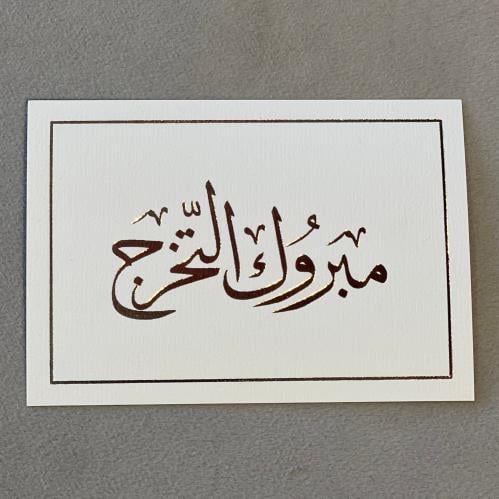 مبروُك التّخرج